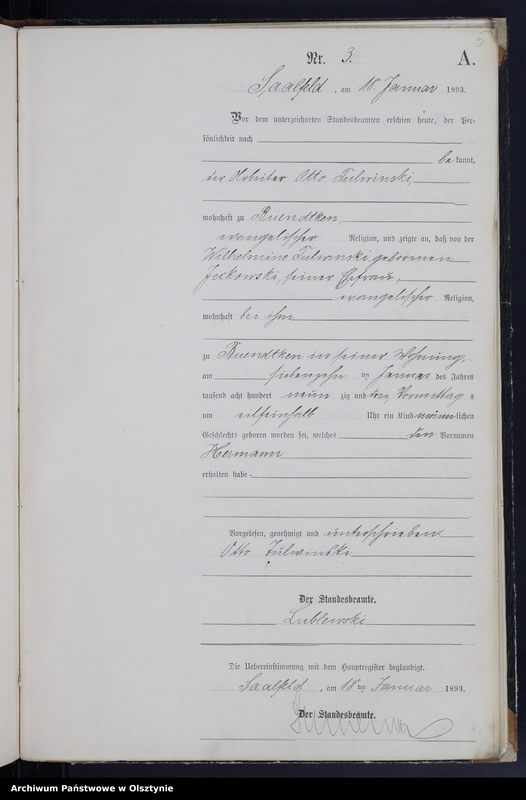 5
Nr. 3. A.
Saalfeld, am 18. Januar 1893.
Vor dem unterzeichneten Standesbeamten erschien heute, der Per-
sönlichkeit nach
bekannt,
der Arbeiter Otto Tulwinski,
wohnhaft zu Buendtken,
evangelischer Religion, und zeigte an, daß von der
Wilhelmine Tulwinski geborenen
Jeckowski, seiner Ehefrau,
evangelischer Religion,
wohnhaft bei ihm
zu Buendtken in seiner Wohnung,
am siebenzehnten Januar des Jahres
tausend acht hundert neunzig und drei, Vormittags
um eilfeinhalb Uhr ein Kind männlichen
Geschlechts geboren worden sei, welches den Vornamen
Hermann
erhalten habe.
Vorgelesen, genehmigt und unterschrieben.
Otto Tulwinski
Der Standesbeamte.
Lublewski
Die Uebereinstimmung mit dem Hauptregister beglaubigt.
Saalfeld, am 18ten Januar 1893.
Der Standesbeamte.
Archiwum Państwowe w Olsztynie